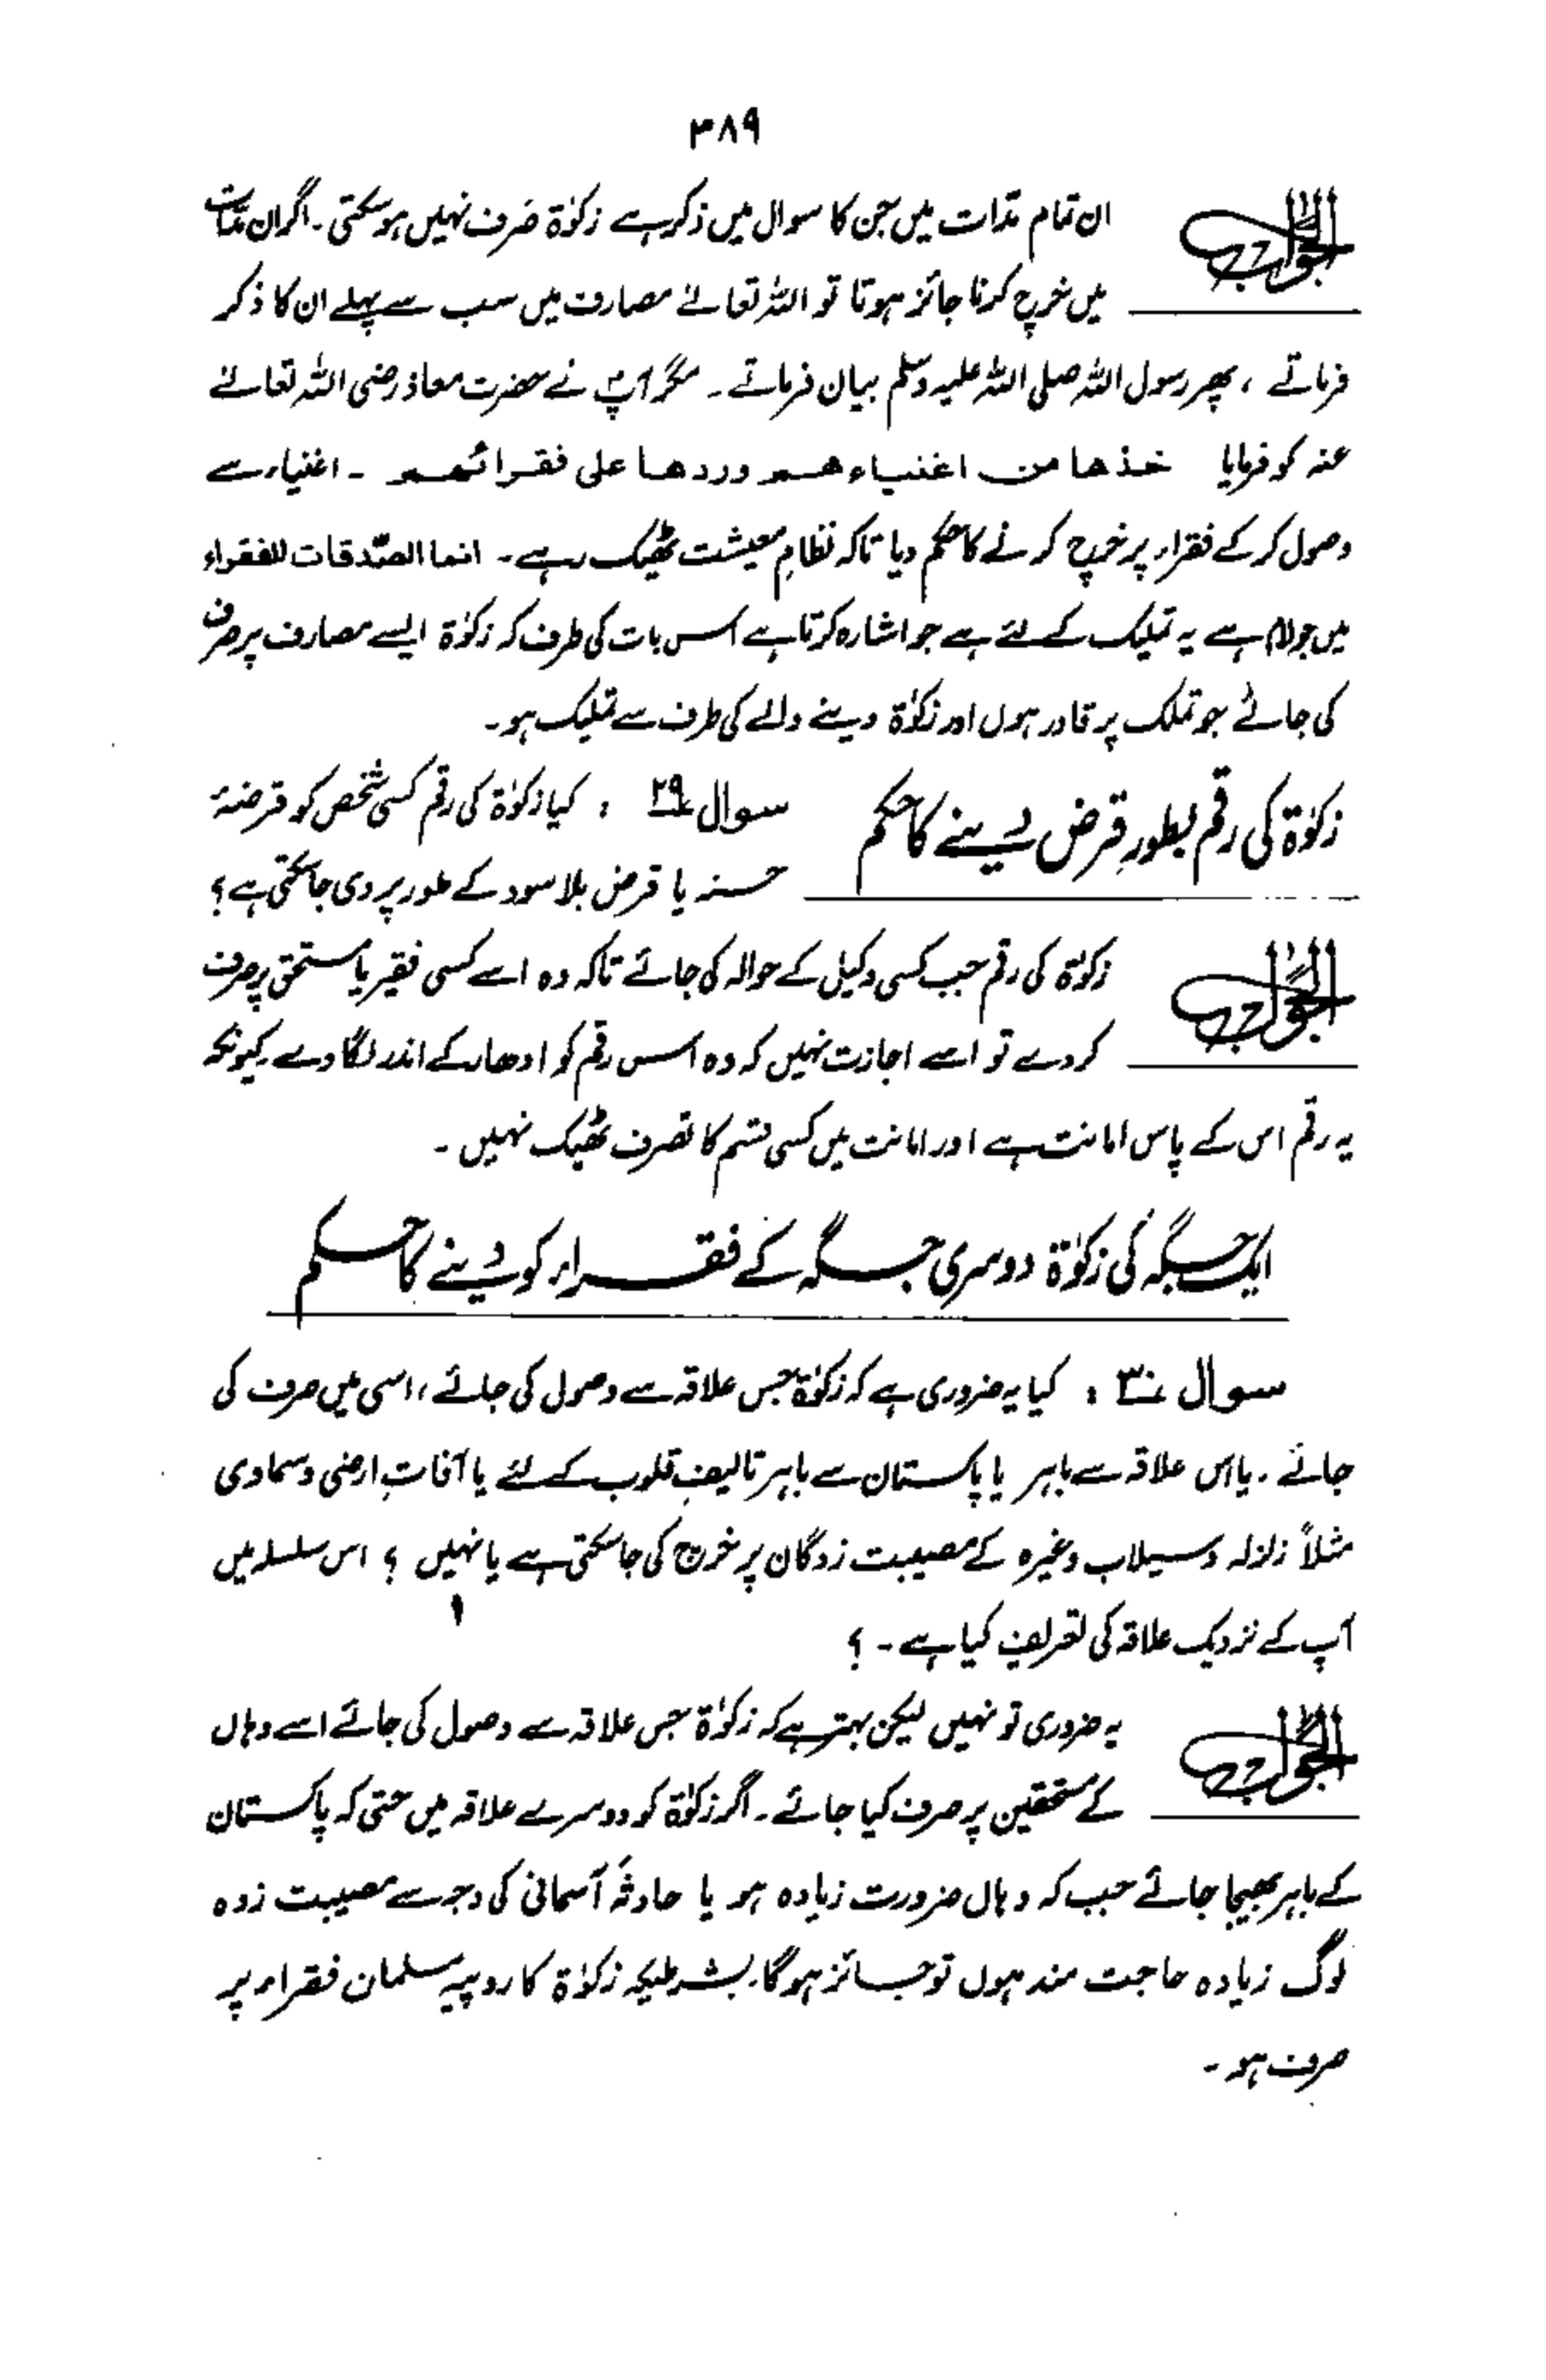 ۳۸۹
الجواب ان تمام مدّات میں جن کا سوال میں ذکر ہے زکوٰۃ صَرف نہیں ہو سکتی۔ اگر ان مدّات
میں خرچ کرنا جائز ہوتا تو اللہ تعالےٰ مصارف میں سب سے پہلے ان کا ذکر
فرماتے ، پھر رسول اللہ صلی اللہ علیہ وسلم بیان فرماتے ۔ مگر آپؐ نے حضرت معاذ رضی اللہ تعالےٰ
عنہ کو فرمایا خذها من اغنیاءهم وردها علی فقرائهم ۔ اغنیاء سے
وصول کر کے فقراء پر خرچ کرنے کا حکم دیا تاکہ نظامِ معیشت ٹھیک رہے ۔ انما الصّدقات للفقراء
میں جو لام ہے یہ تملیک کے لئے ہے جو اشارہ کرتا ہے اس بات کی طرف کہ زکوٰۃ ایسے مصارف پر صرف
کی جائے جو تملک پر قادر ہوں اور زکوٰۃ دینے والے کی طرف سے تملیک ہو۔
زکوٰۃ کی رقم بطورِ قرض دینے کا حکم
سوال ۲۹ : کیا زکوٰۃ کی رقم کسی شخص کو قرضۂ
حسنہ یا قرض بلا سود کے طور پر دی جا سکتی ہے ؟
الجواب زکوٰۃ کی رقم جب کسی وکیل کے حوالہ کی جائے تاکہ وہ اسے کسی فقیر یا مستحق پر صرف
کر دے تو اسے اجازت نہیں کہ وہ اس رقم کو ادھار کے اندر لگا دے کیونکہ
یہ رقم اس کے پاس امانت ہے اور امانت میں کسی قسم کا تصرف ٹھیک نہیں ۔
ایک جگہ کی زکوٰۃ دوسری جگہ کے فقراء کو دینے کا حکم
سوال ۳۰ : کیا یہ ضروری ہے کہ زکوٰۃ جس علاقہ سے وصول کی جائے ، اسی میں صرف کی
جائے ۔ یا اس علاقہ سے باہر یا پاکستان سے باہر تالیفِ قلوب کے لئے یا آفاتِ ارضی و سماوی
مثلاً زلزلہ و سیلاب وغیرہ کے مصیبت زدگان پر خرچ کی جا سکتی ہے یا نہیں ؟ اس سلسلہ میں
آپ کے نزدیک علاقہ کی تعریف کیا ہے ۔ ؟
الجواب یہ ضروری تو نہیں لیکن بہتر ہے کہ زکوٰۃ جس علاقہ سے وصول کی جائے اسے وہاں
کے مستحقین پر صرف کیا جائے ۔ اگر زکوٰۃ کو دوسرے علاقہ میں حتی کہ پاکستان
کے باہر بھیجا جائے جب کہ وہاں ضرورت زیادہ ہو یا حادثۂ آسمانی کی وجہ سے مصیبت زدہ
لوگ زیادہ حاجت مند ہوں تو جائز ہوگا۔ بشرطیکہ زکوٰۃ کا روپیہ مسلمان فقراء پر
صرف ہو ۔